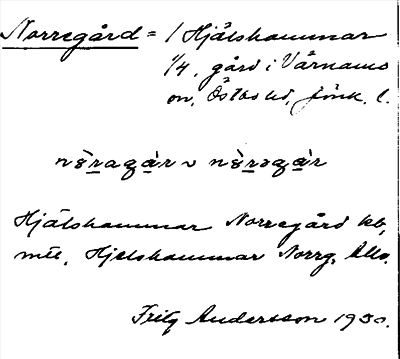 Norregård = / Hjälshammar
1/4, gård i Värnamo
on. Östbo hd, Jönk. l.
nèragàr ~ nèrəgàr
Hjälshammar Norregård kb,
Hjelshammar Norrg.
Fritz Andersson 1930.